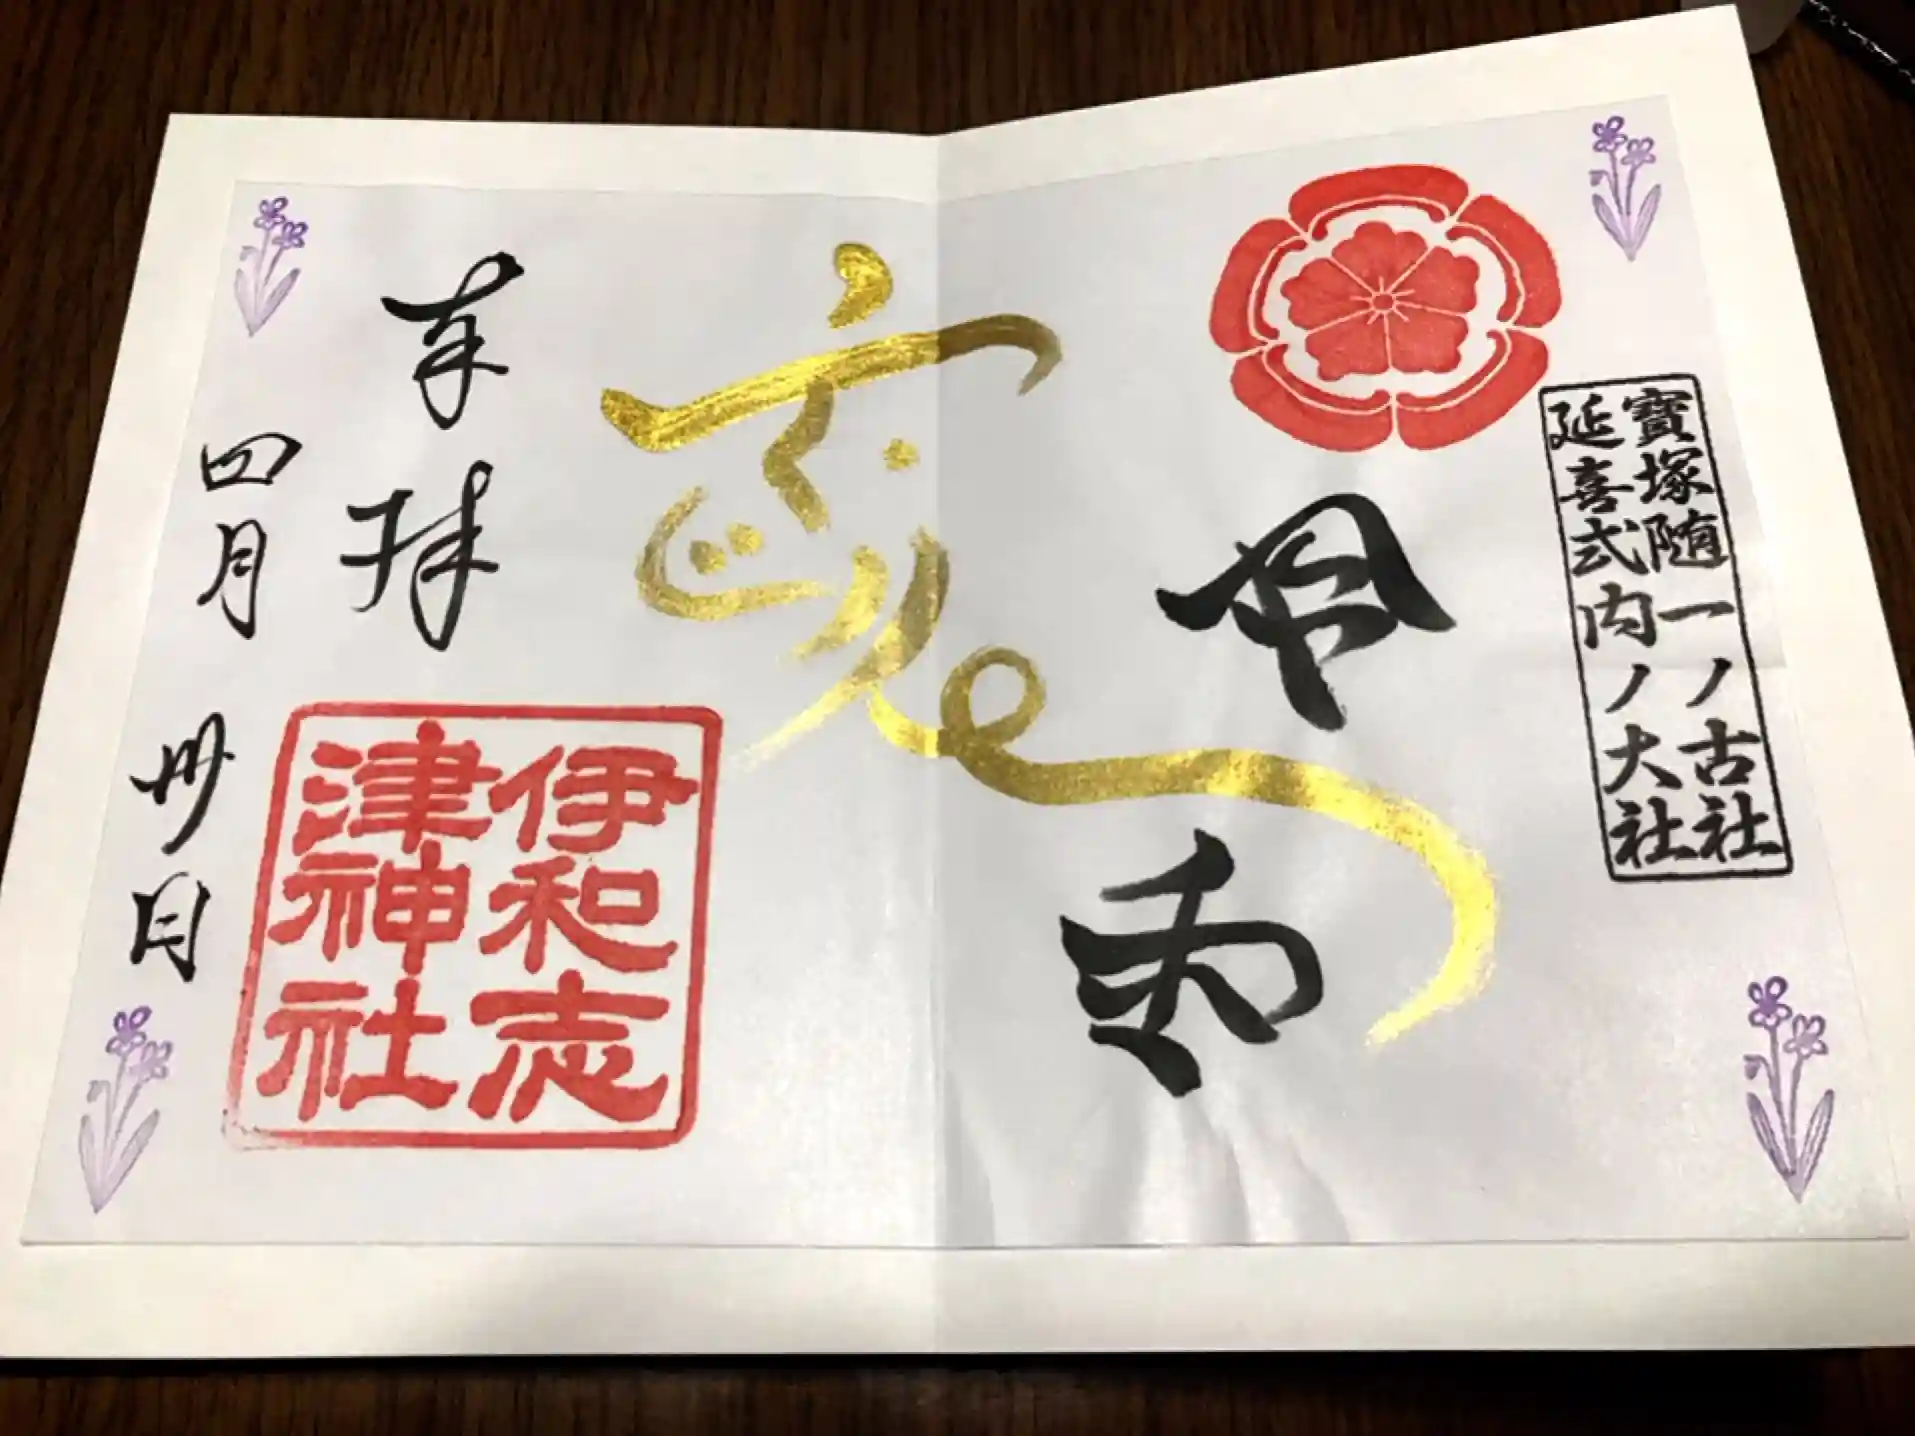 寶塚随一ノ古社
延喜式内ノ大社
奉拝
四月卅日
伊和志
津神社